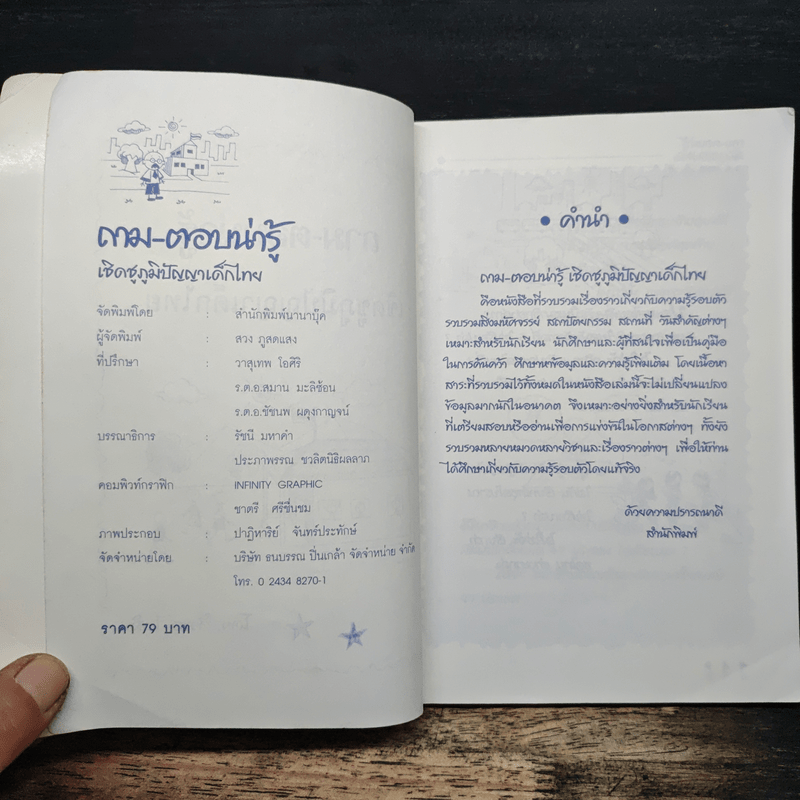 ถาม-ตอบน่ารู้
เชิดชูภูมิปัญญาเด็กไทย
จัดพิมพ์โดย : สำนักพิมพ์นานาบุ๊ค
ผู้จัดพิมพ์ : สวง ภูสดแสง
ที่ปรึกษา : วาสุเทพ โอศิริ
ร.ต.อ.สมาน มะลิซ้อน
ร.ต.อ.ชัชนพ ผดุงกาญจน์
บรรณาธิการ : รัชนี มหาคำ
ประภาพรรณ ชวลิตนิธิผลลาภ
คอมพิวท์กราฟิก : INFINITY GRAPHIC
ชาตรี ศรีชื่นชม
ภาพประกอบ : ปาฏิหาริย์ จันทร์ประทักษ์
จัดจำหน่ายโดย : บริษัท ธนบรรณ ปิ่นเกล้า จัดจำหน่าย จำกัด
โทร. 0 2434 8270-1
ราคา 79 บาท
• คำนำ •
ถาม-ตอบน่ารู้ เชิดชูภูมิปัญญาเด็กไทย
คือหนังสือที่รวบรวมเรื่องราวเกี่ยวกับความรู้รอบตัว
รวบรวมสิ่งมหัศจรรย์ สถาปัตยกรรม สถานที่ วันสำคัญต่างๆ
เหมาะสำหรับนักเรียน นักศึกษาและผู้ที่สนใจเพื่อเป็นคู่มือ
ในการค้นคว้า ศึกษาหาข้อมูลและความรู้เพิ่มเติม โดยเนื้อหา
สาระที่รวบรวมไว้ทั้งหมดในหนังสือเล่มนี้จะไม่เปลี่ยนแปลง
ข้อมูลมากนักในอนาคต จึงเหมาะอย่างยิ่งสำหรับนักเรียน
ที่เตรียมสอบหรืออ่านเพื่อการแข่งขันในโอกาสต่างๆ ทั้งยัง
รวบรวมหลายหมวดหลายวิชาและเรื่องราวต่างๆ เพื่อให้ท่าน
ได้ศึกษาเกี่ยวกับความรู้รอบตัวโดยแท้จริง
ด้วยความปรารถนาดี
สำนักพิมพ์